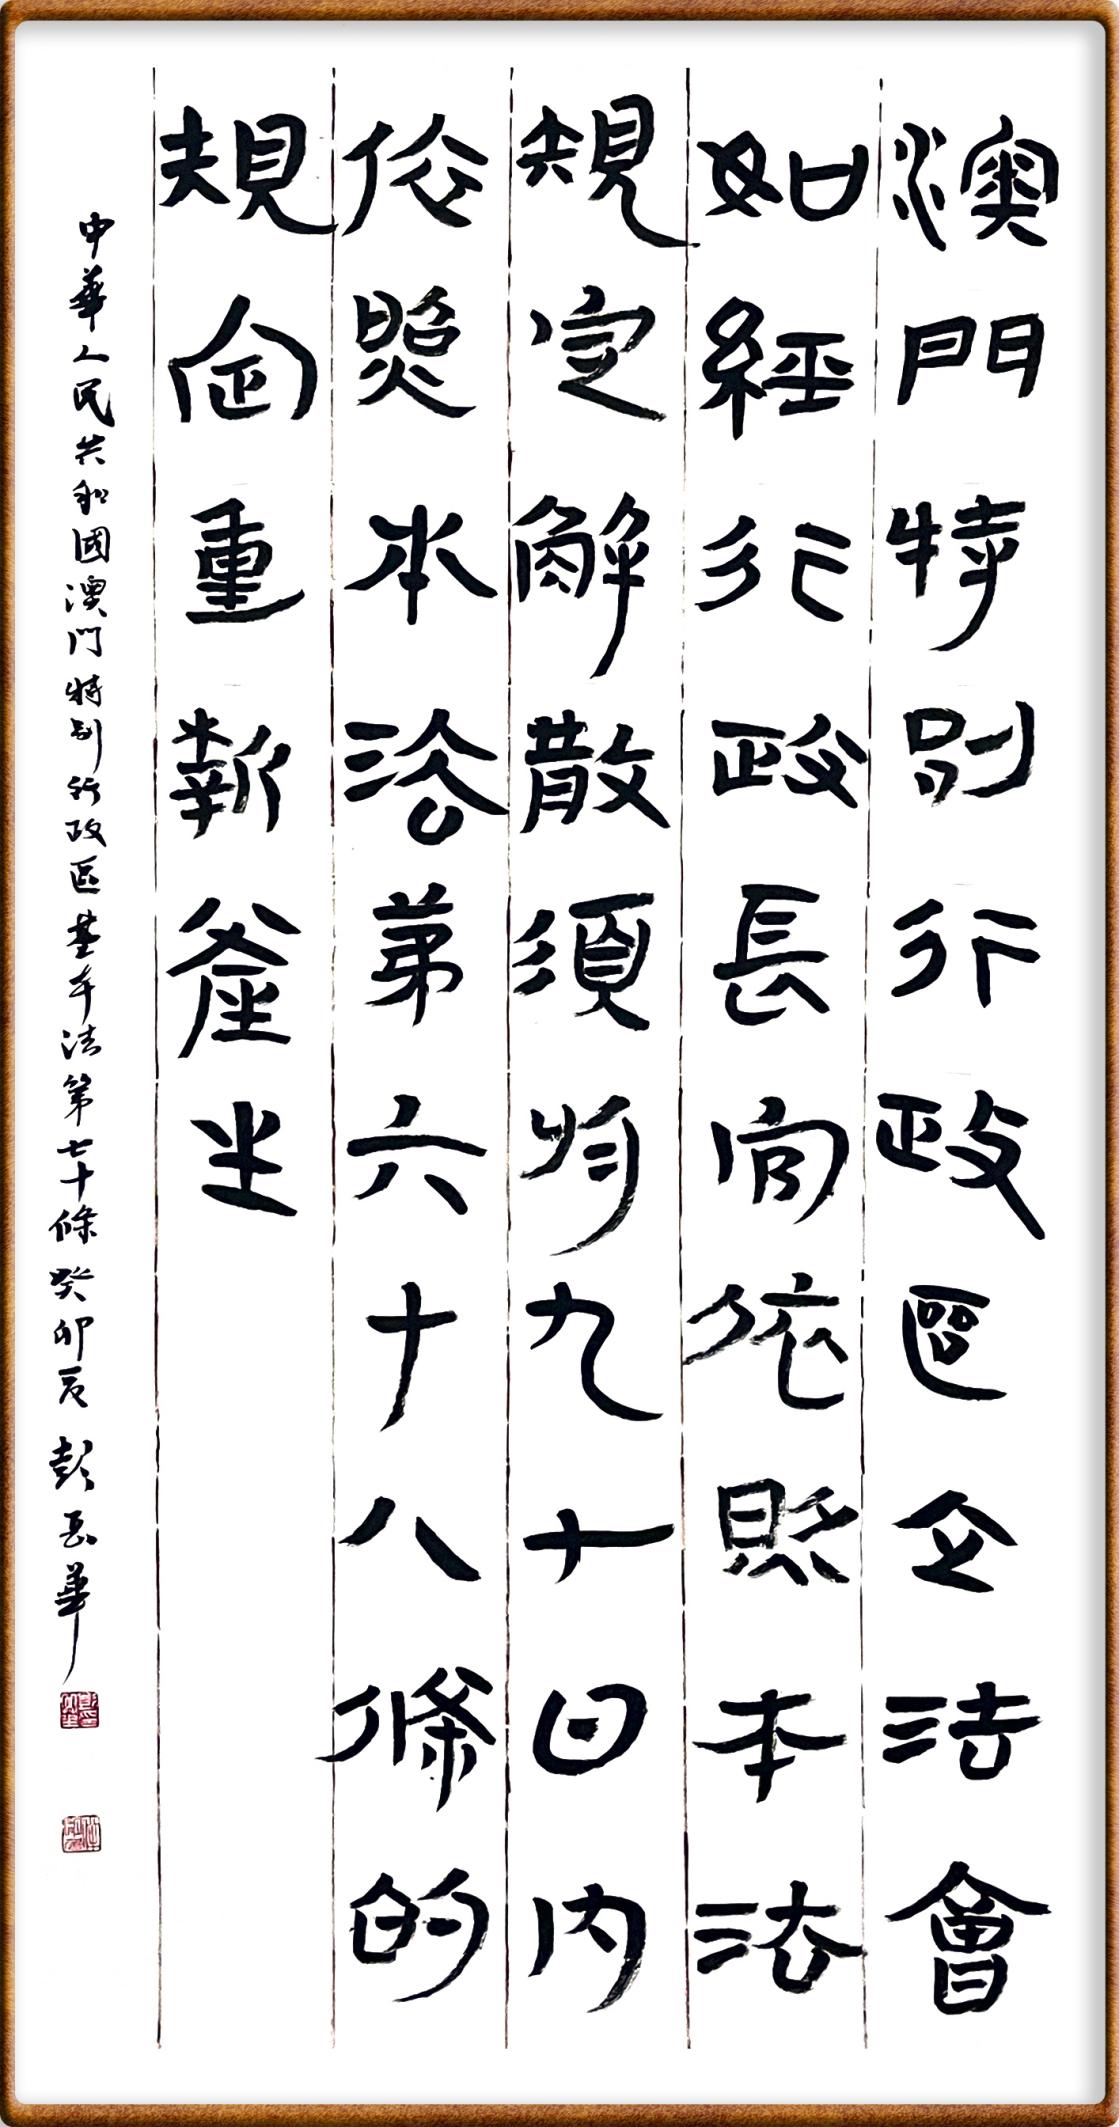 澳門特別行政區立法會
如經行政長官依照本法
規定解散須於九十日內
依照本法第六十八條的
規定重新產生
中華人民共和國澳門特別行政區基本法第七十條 癸卯夏 彭 華